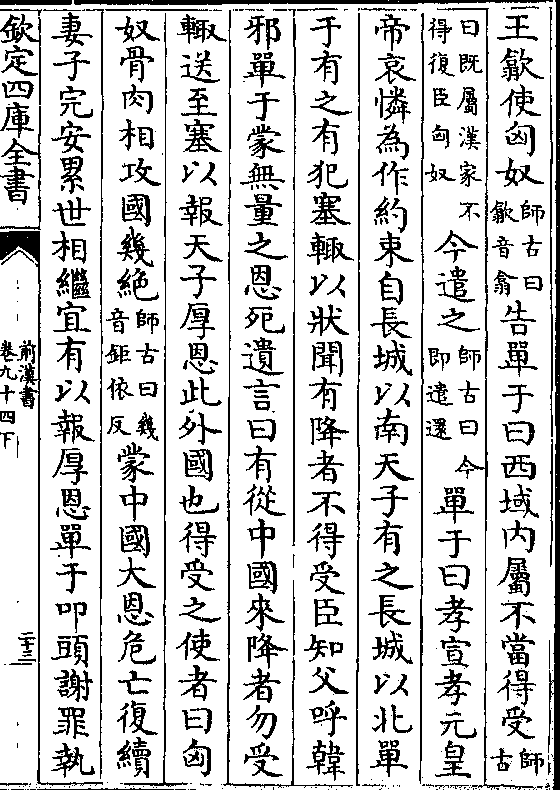 王歙使匈奴師古曰歙音翕告單于曰西域内屬不當得受師古
曰既屬漢家不得復臣匈奴今遣之師古曰今即遣還單于曰孝宣孝元皇
帝哀憐為作約束自長城以南天子有之長城以北單
于有之有犯塞輙以狀聞有降者不得受臣知父呼韓
邪單于蒙無量之恩死遺言曰有從中國來降者勿受
輙送至塞以報天子厚恩此外國也得受之使者曰匈
奴骨肉相攻國幾絶師古曰幾音鉅依反蒙中國大恩危亡復續
妻子完安累世相繼宜有以報厚恩單于叩頭謝罪執
欽定四庫全書
前漢書
卷九十四下
二十三